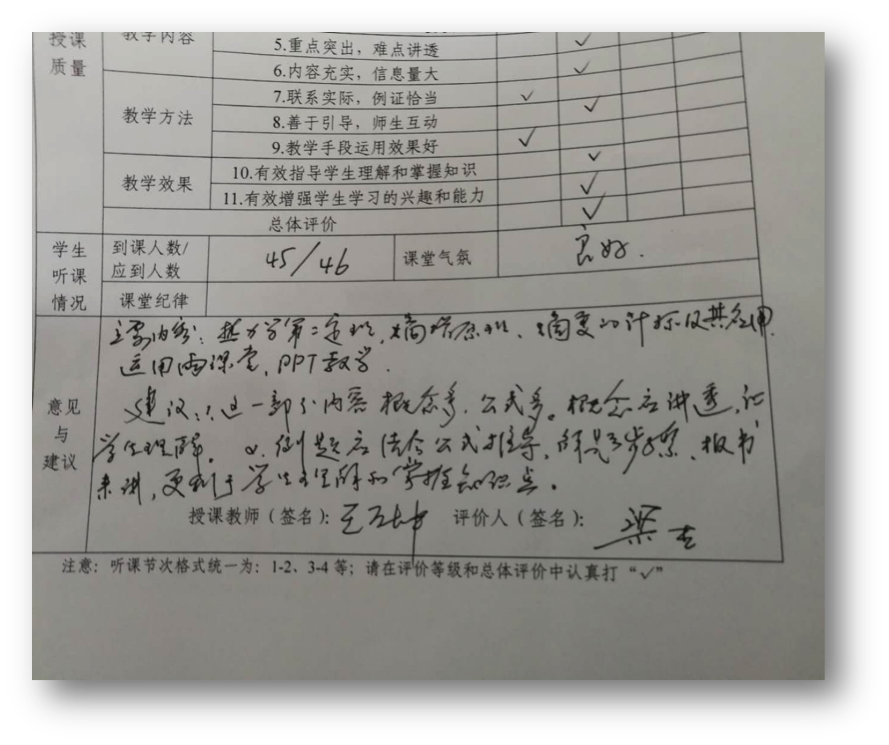 授课 教学内容
质量
5.重点突出，难点讲透 ✓
6.内容充实，信息量大 ✓
教学方法
7.联系实际，例证恰当 ✓
8.善于引导，师生互动 ✓
9.教学手段运用效果好 ✓
教学效果
10.有效指导学生理解和掌握知识 ✓
11.有效增强学生学习的兴趣和能力 ✓
总体评价 ✓
学生听课情况
到课人数/应到人数 45/46 课堂气氛 良好.
课堂纪律
意见与建议
主要内容：热力学第二定律、熵增原理、熵变的计算及其应用.
运用雨课堂，PPT教学.
建议：1.这一部分内容概念多，公式多。概念应讲透，让
学生理解。2.例题应结合公式推导，解题步骤、板书
来讲，更利于学生理解和掌握知识点。
授课教师（签名）： 评价人（签名）：
注意：听课节次格式统一为：1-2、3-4 等；请在评价等级和总体评价中认真打“✓”